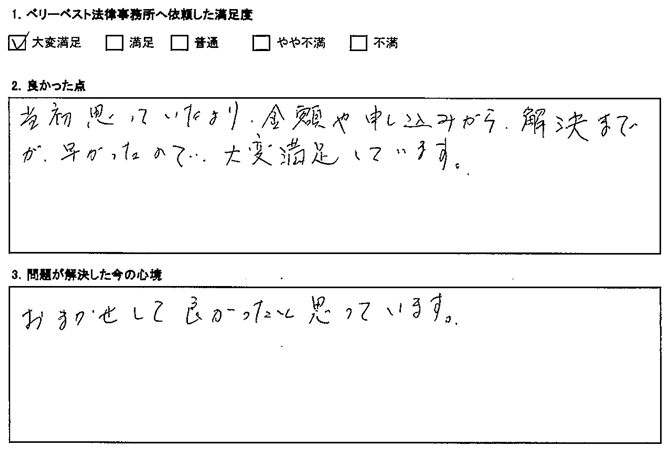 1. ベリーベスト法律事務所へ依頼した満足度
大変満足 満足 普通 やや不満 不満
2. 良かった点
当初思っていたより、金額や申し込みから、解決まで
が、早かったので、大変満足しています。
3. 問題が解決した今の心境
おまかせして良かったと思っています。